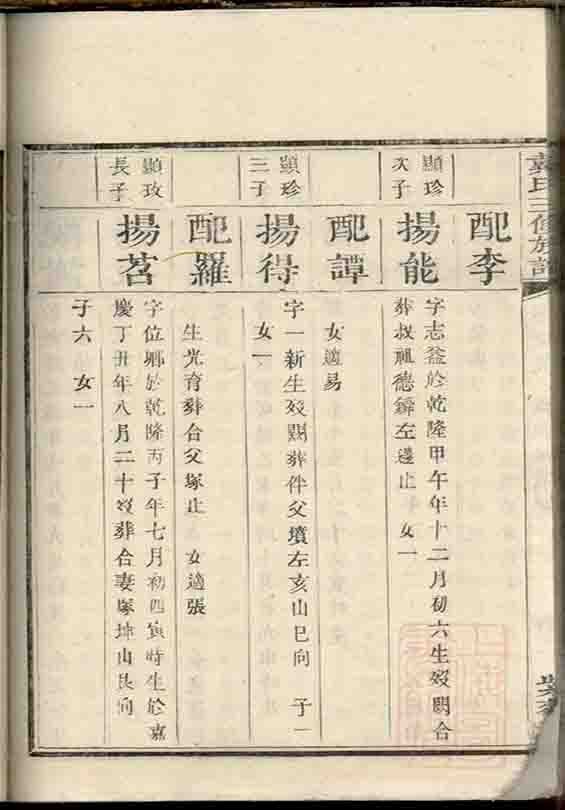 氏三修族譜
配李
顯珍
次子
揚能
字志益於乾隆甲午年十二月初六生歿闕合
葬叔祖德 左邊止 女一
配譚
女適易
顯珍
三子
揚得
字一新生歿闕葬伴父墳左亥山巳向 子一
女一
配羅
生光育葬合父塚止 女適張
顯玫
長子
揚茗
字位卿於乾隆丙子年七月初四寅時生於嘉
慶丁丑年八月二十歿葬合妻塚坤山艮向
子六 女一